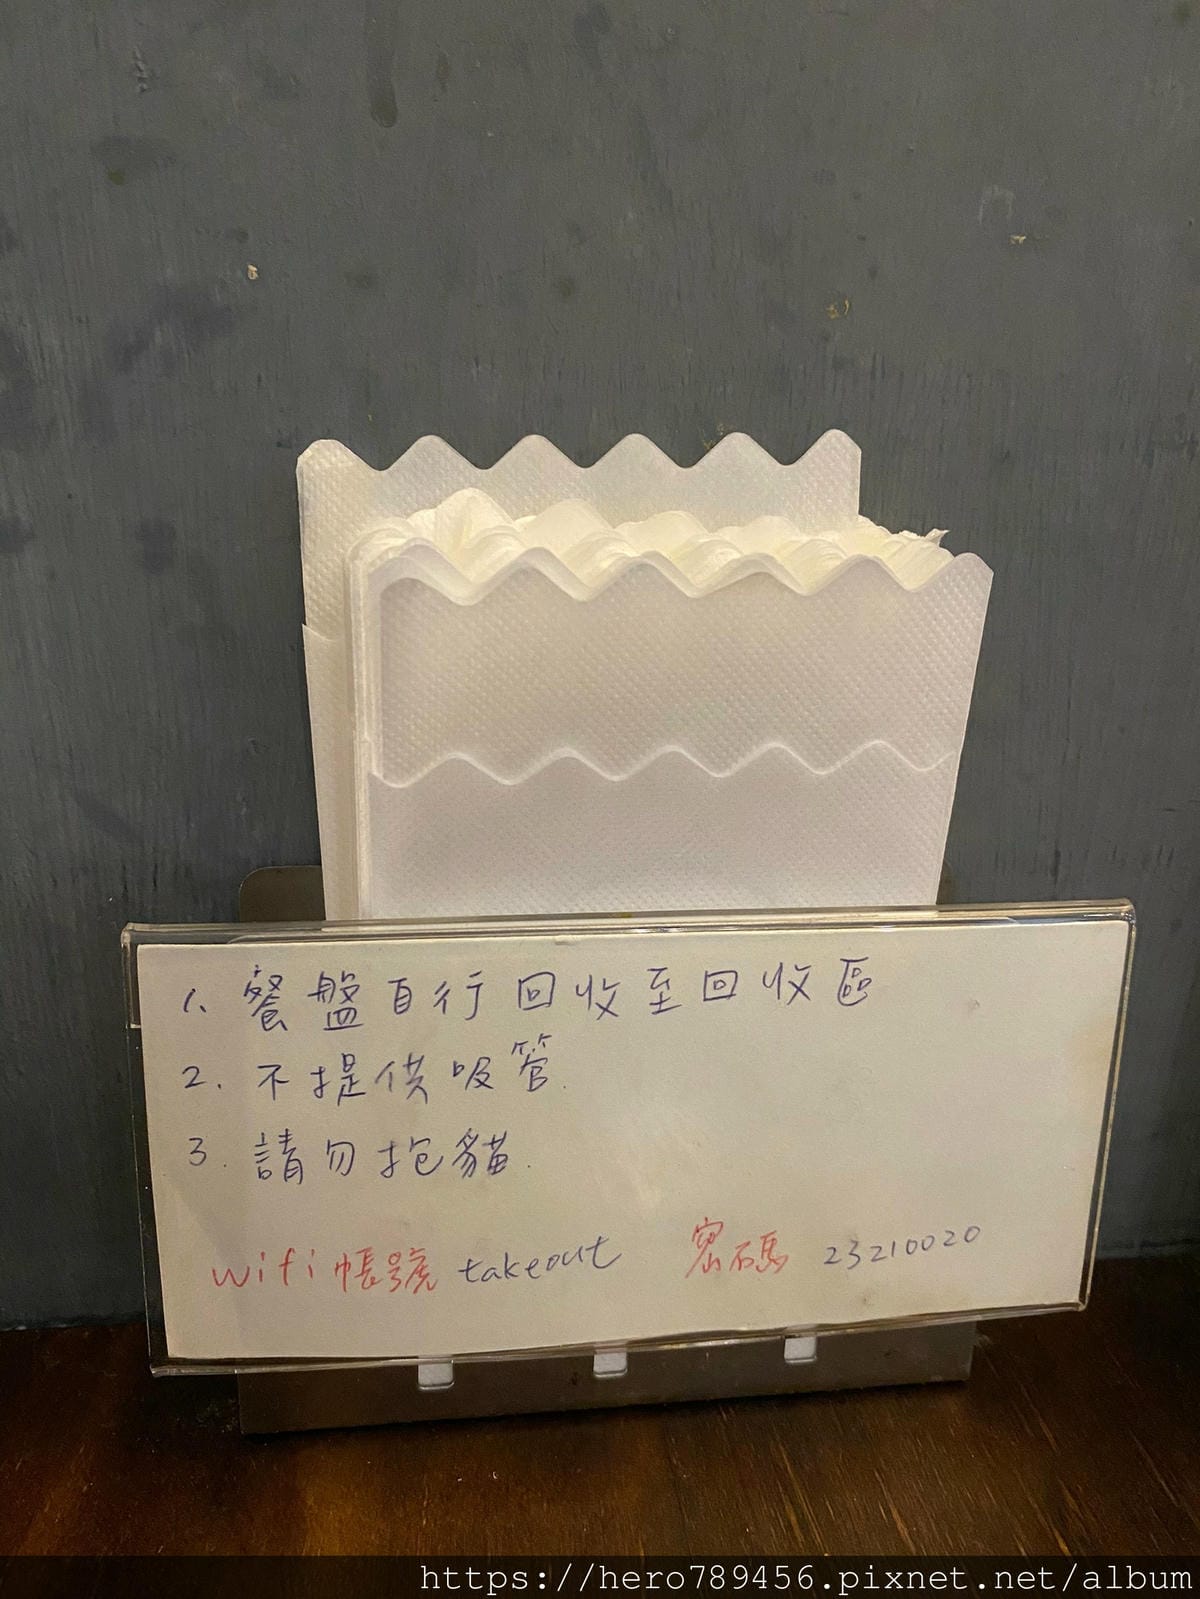 1. 餐盤自行回收至回收區
2. 不提供吸管.
3. 請勿抱貓.
wifi帳號 takeout 密碼 23210020
https://hero789456.pixnet.net/album